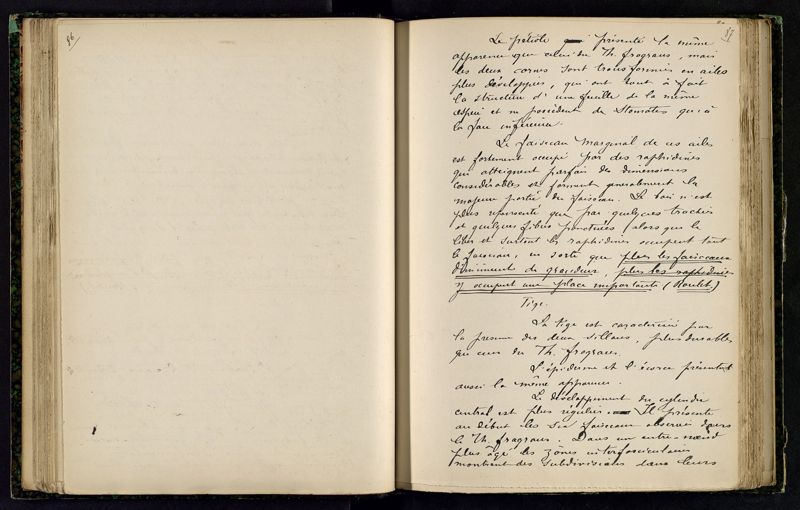 86
87
Le pétiole présente la même
apparence que celui du Th. fragrans, mais
les deux cornes sont transformées en ailes
plus développées, qui ont tout à fait
la structure d'une feuille de la même
espèce et ne possèdent de stomates qu'à
la face inférieure.
Le faisceau marginal de ces ailes
est fortement occupé par des raphidines
qui atteignent parfois des dimensions
considérables et forment généralement la
majeure partie du faisceau. Le bois n'est
plus représenté que par quelques trachées
et quelques fibres ponctuées, alors que le
liber et surtout les raphidines occupent tout
le faisceau, en sorte que plus les faisceaux
diminuent de grandeur, plus les raphidines
y occupent une place importante (Roulet)
Tige.
La tige est caractérisée par
la présence des deux sillons, plus durables
que ceux du Th. fragrans.
L'épiderme et l'écorce présentent
aussi la même apparence.
Le développement du cylindre
central est plus régulier. Il présente
au début les six faisceaux observés dans
le Th. fragrans. Dans un entre-nœud
plus âgé les zones interfasciculaires
montrent des subdivisions dans leurs